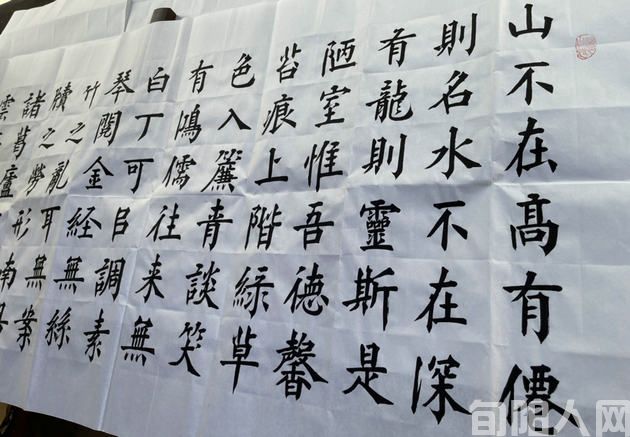 山不在髙有僊
則名水不在深
有龍則靈斯是
陋室惟吾德馨
苔痕上階緑草
色入簾青談笑
有鴻儒往来無
白丁可㠯調素
琴閲金経無絲
竹之亂耳無案
牘之勞形南
諸葛廬
雲
旬阳人网